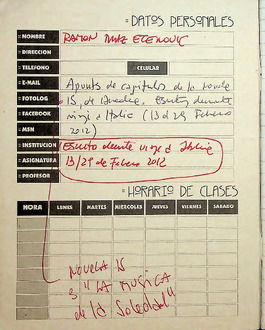 DATOS PERSONALES
NOMBRE RAMON DIAZ ETEROVIC
DIRECCION
TELEFONO CELULAR
E-MAIL Apuntes de capitulos de la novela
FOTOLOG 15, de Heredia. Escritos durante
FACEBOOK viaje a Italia (13 al 29 Febrero
MSN 2012)
INSTITUCION Escrito durante viaje a Italia
ASIGNATURA 13/29 de Febrero 2012
PROFESOR
HORARIO DE CLASES
HORA LUNES MARTES MIERCOLES JUEVES VIERNES SABADO
NOVELA 15
"LA MUSICA
de la Soledad"